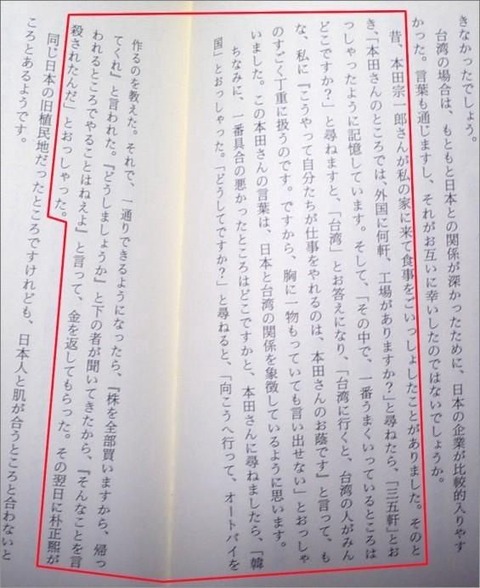 きなかったでしょう。
台湾の場合は、もともと日本との関係が深かったために、日本の企業が比較的入りやす
かった。言葉も通じますし、それがお互いに幸いしたのではないでしょうか。
昔、本田宗一郎さんが私の家に来て食事をごいっしょしたことがありました。そのと
き、「本田さんのところでは、外国に何軒、工場がありますか?」と尋ねたら、「三五軒」とお
っしゃったように記憶しています。そして、「その中で、一番うまくいっているところは
どこですか?」と尋ねますと、「台湾」とお答えになり、「台湾に行くと、台湾の人がみん
な、私に『こうやって自分たちが仕事をやれるのは、本田さんのお蔭です』と言って、も
のすごく丁重に扱うのです。ですから、胸に一物もっていても言い出せない」とおっしゃ
いました。この本田さんの言葉は、日本と台湾の関係を象徴しているように思います。
ちなみに、一番具合の悪かったところはどこですかと、本田さんに尋ねましたら、「韓
国」とおっしゃった。「どうしてですか?」と尋ねると、「向こうへ行って、オートバイを
作るのを教えた。それで、一通りできるようになったら、『株を全部買いますから、帰っ
てくれ』と言われた。『どうしましょうか』と下の者が聞いてきたから、『そんなことを言
われるところでやることはねえよ』と言って、金を返してもらった。その翌日に朴正熙が
殺されたんだ」とおっしゃった。
同じ日本の旧植民地だったところですけれども、日本人と肌が合うところと合わないと
ころとあるようです。